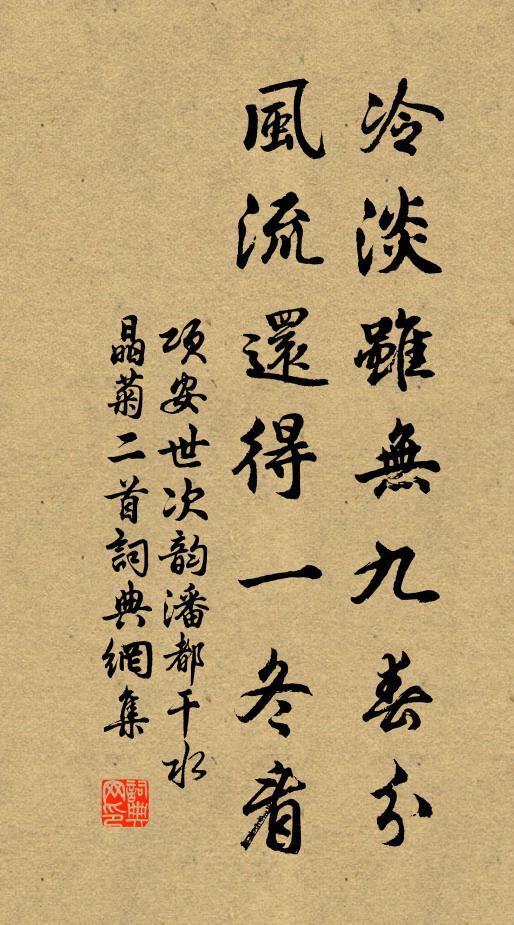 冷淡雖無九春分
風流還得一冬看
項安世次韵潘都干水
晶菊二首詞典網集
詞典网印